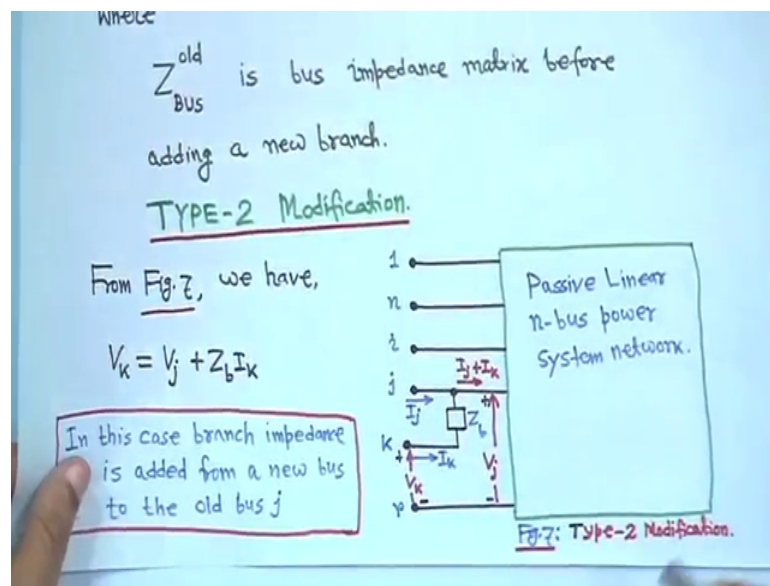 where
Z old BUS is bus impedance matrix before
adding a new branch.
TYPE-2 Modification.
From Fig.7, we have,
Vk = Vj + ZbIk
In this case branch impedance
is added from a new bus
to the old bus j
1
n
i
j
k
r
Ij+Ik
Ij
+
Zb
+
Ik
Vk
Vj
-
-
Passive Linear
n-bus power
system network.
Fig.7: Type-2 Modification.